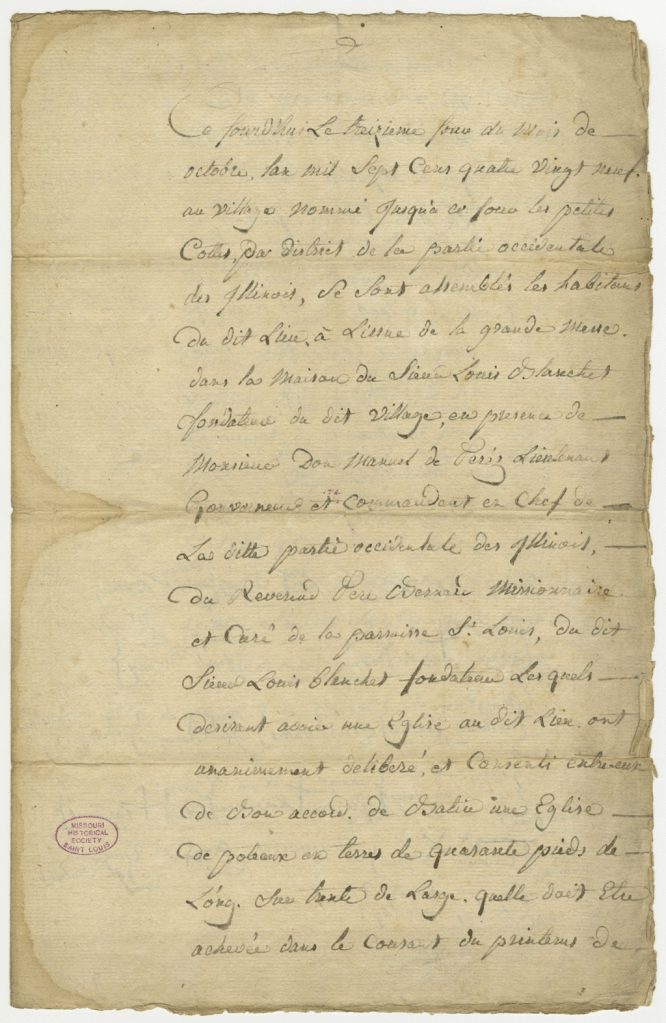 Ce jourd'hui Le treizieme jour du Mois de
octobre, lan mil Sept Cens quatre vingt neuf.
au village nommé jusqu'a ce jour les petites
Cottes, district de la partie occidentale
des Illinois, Se Sont assemblés les habitans
Du dit Lieu, à Lissue de la grande Messe.
dans la Maison du Sieur Louis Blanchet
fondateur du dit village, en presence de
Monsieur Don Manuel de Peréz Lieutenant
Gouverneur et commandant en Chef de
La ditte partie occidentale des Illinois,
Du Reverend Pere Bernard Missionnaire
et Curé de la parroisse St. Louis, Du dit
Sieur Louis blanchet fondateur Lesquels
desirent avoir une Eglise au dit Lieu. ont
unanimement deliberé, et Consenti entre eux
de Bon accord. de Batir une Eglise
De poteaux en terres de quarante pieds de
Lóng. Sur trente de Large. quelle doit Etre
achevée dans le Courant du printems de
MISSOURI
HISTORICAL
SOCIETY
SAINT LOUIS